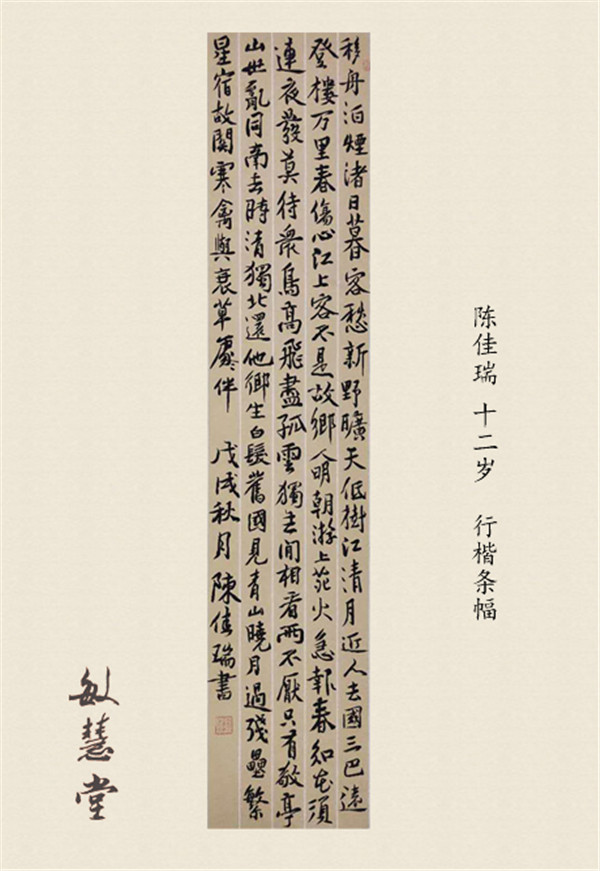 陈佳瑞 十二岁 行楷条幅
移舟泊煙渚日暮客愁新野曠天低樹江清月近人去國三巴遠
登樓万里春傷心江上客不是故鄉人明朝游上苑火急報春知花須
連夜發莫待衆鳥高飛盡孤雲獨去閒相看兩不厭只有敬亭
山世亂同南去時清獨北還他鄉生白髮舊國見青山曉月過殘壘繁
星宿故關寒禽與衰草處々伴 戊戌秋月陳佳瑞書
敏慧堂